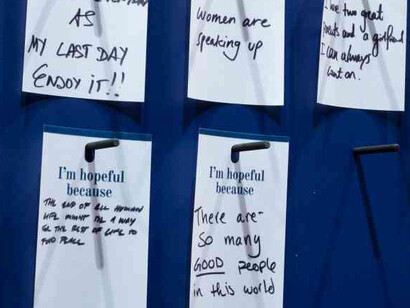 AS
MY LAST DAY
ENJOY IT!!
Women are
speaking up
two great
and a girlfriend
I can always
count on.
I'm hopeful
because
THE END OF ALL HUMAN
LIFE MIGHT BE A WAY
THE REST OF LIFE TO
FIND PEACE
I'm hopeful
because
There are
So many
GOOD people
in this world